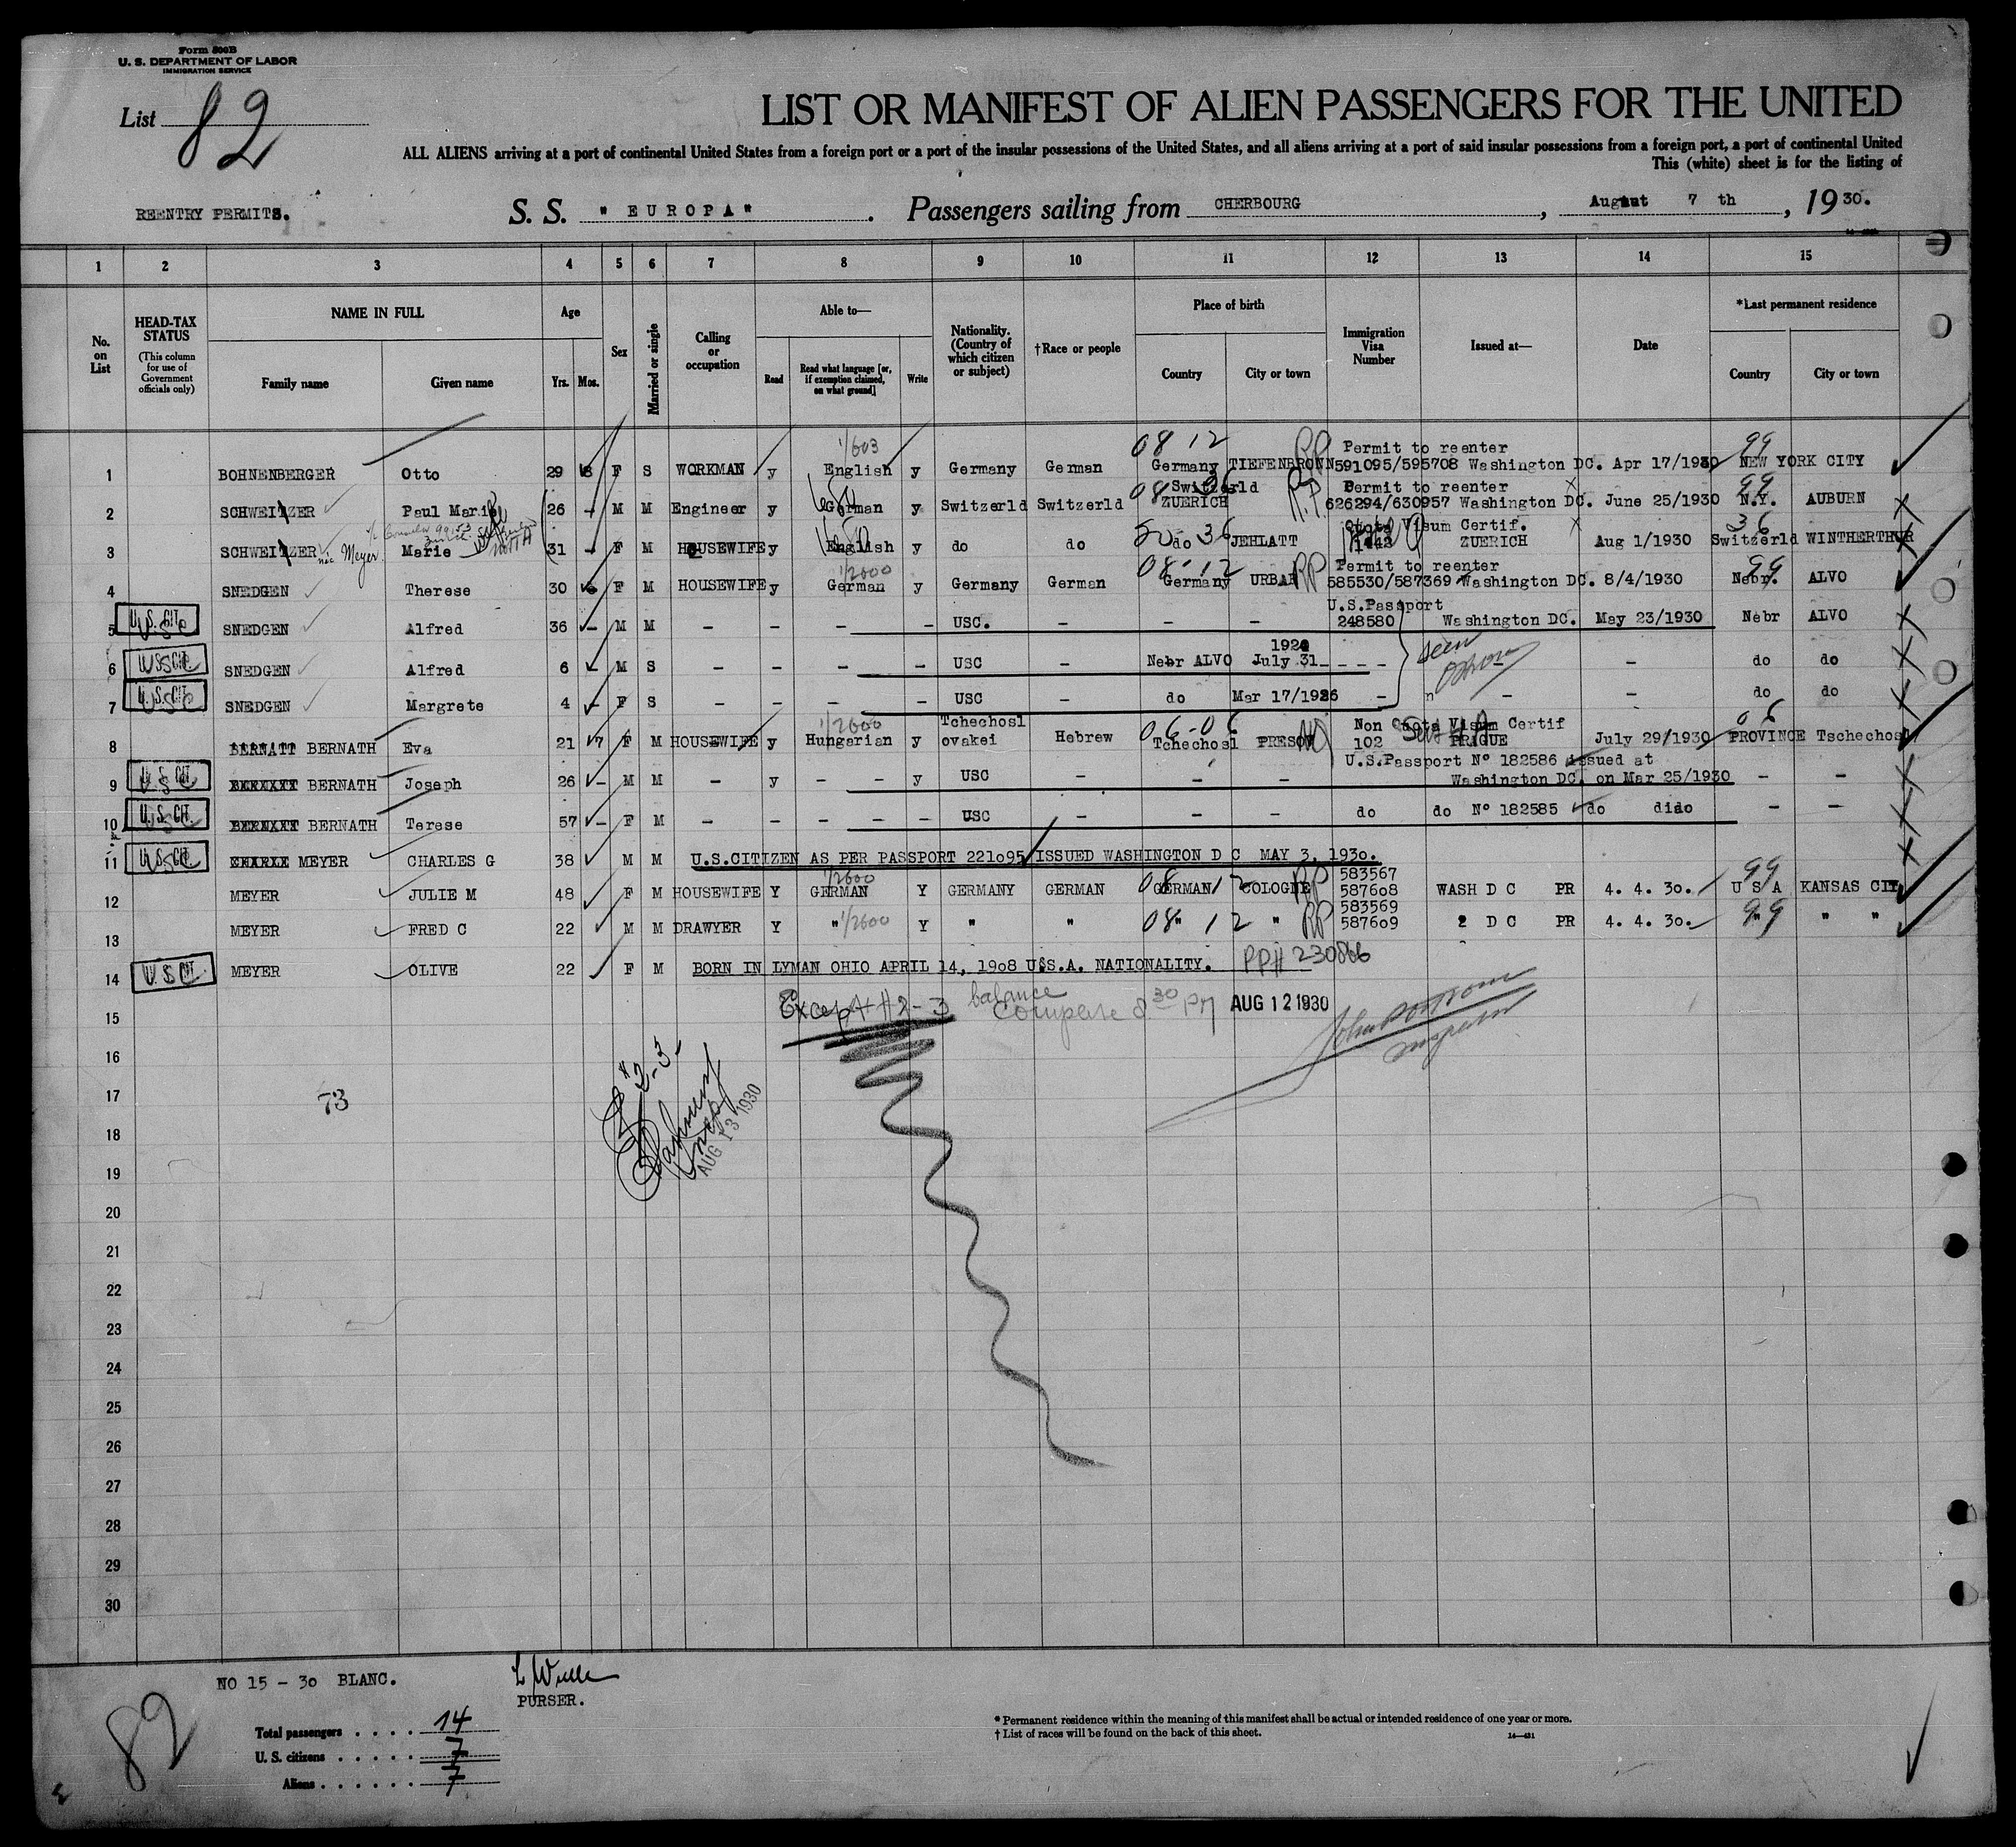 Form 500B
U. S. DEPARTMENT OF LABOR
IMMIGRATION SERVICE
List 82
LIST OR MANIFEST OF ALIEN PASSENGERS FOR THE UNITED
ALL ALIENS arriving at a port of continental United States from a foreign port or a port of the insular possessions of the United States, and all aliens arriving at a port of said insular possessions from a foreign port, a port of continental United
This (white) sheet is for the listing of
REENTRY PERMITS. S. S. "EUROPA". Passengers sailing from CHERBOURG, August 7 th, 1930.
1 2 3 4 5 6 7 8 9 10 11 12 13 14 15
No. on List
HEAD-TAX STATUS
(This column for use of Government officials only)
NAME IN FULL
Family name Given name
Age
Yrs. Mos.
Sex
Married or single
Calling or occupation
Able to—
Read Read what language [or, if exemption claimed, on what ground] Write
Nationality. (Country of which citizen or subject)
†Race or people
Place of birth
Country City or town
Immigration Visa Number
Issued at—
Date
*Last permanent residence
Country City or town
1/603 08 12 RP Permit to reenter 99
1 BOHNENBERGER Otto 29 8 F S WORKMAN y English y Germany German Germany TIEFENBRONN 591095/595708 Washington DC. Apr 17/1930 NEW YORK CITY
08 36 Switzerld R.P Permit to reenter 99
2 SCHWEITZER Paul Marie 26 - M M Engineer y German y Switzerld Switzerld ZUERICH 626294/630957 Washington DC. June 25/1930 N.Y. AUBURN
36 Visum Certif. 36
3 SCHWEITZER née Meyer Marie 31 - F M HOUSEWIFE y English y do do do JEHLATT 1443 ZUERICH Aug 1/1930 Switzerld WINTHERTHUR
1/2600 08-12 RP Permit to reenter 99
4 SNEDGEN Therese 30 F M HOUSEWIFE y German y Germany German Germany URBAR 585530/587369 Washington DC. 8/4/1930 Nebr. ALVO
U.S.Passport
5 U.S. CIT. USC SNEDGEN Alfred 36 - M M - - - - USC. - - - 248580 Washington DC. May 23/1930 Nebr ALVO
6 U.S. CIT. SNEDGEN Alfred 6 - M S - - - - USC - Nebr ALVO July 31 - - - - seen - - do do
7 U.S. CIT. USC SNEDGEN Margrete 4 - F S - - - - USC - do Mar 17/1926 - - - do do
1/2600 Tchechosl 06-06 Non Quota Visum Certif 06
8 BERNATH Eva 21 7 F M HOUSEWIFE y Hungarian y ovakei Hebrew Tchechosl PRESOV 102 PRAGUE July 29/1930 PROVINCE Tschechosl
U.S.Passport No 182586 issued at
9 U.S. CIT. USC BERNATH Joseph 26 - M M - y - - y USC - - - Washington DC. on Mar 25/1930 - -
10 U.S. CIT. USC BERNATH Terese 57 - F M - - - - - USC - - - do do No 182585 do dido - -
11 U.S. CIT. USC MEYER CHARLES G 38 M M U.S.CITIZEN AS PER PASSPORT 221095 ISSUED WASHINGTON D C MAY 3, 1930.
1/2600 08 12 RP 583567 99
12 MEYER JULIE M 48 F M HOUSEWIFE Y GERMAN Y GERMANY GERMAN GERMAN COLOGNE 587608 WASH D C PR 4. 4. 30. U S A KANSAS CIT
1/2600 08 12 RP 583569 99
13 MEYER FRED C 22 M M DRAWYER Y " Y " " " " 587609 2 D C PR 4. 4. 30. " " "
14 U.S. CIT. USC MEYER OLIVE 22 F M BORN IN LYMAN OHIO APRIL 14, 1908 U.S.A. NATIONALITY. PP# 230866
15 Except #2-3 balance Compare 8 30 PM AUG 12 1930
16 #2-3-
17 73 AUG 13 1930
18
19
20
21
22
23
24
25
26
27
28
29
30
NO 15 - 30 BLANC.
PURSER.
82
Total passengers . . . . 14
U. S. citizens . . . . . 7
Aliens . . . . . . 7
* Permanent residence within the meaning of this manifest shall be actual or intended residence of one year or more.
† List of races will be found on the back of this sheet.